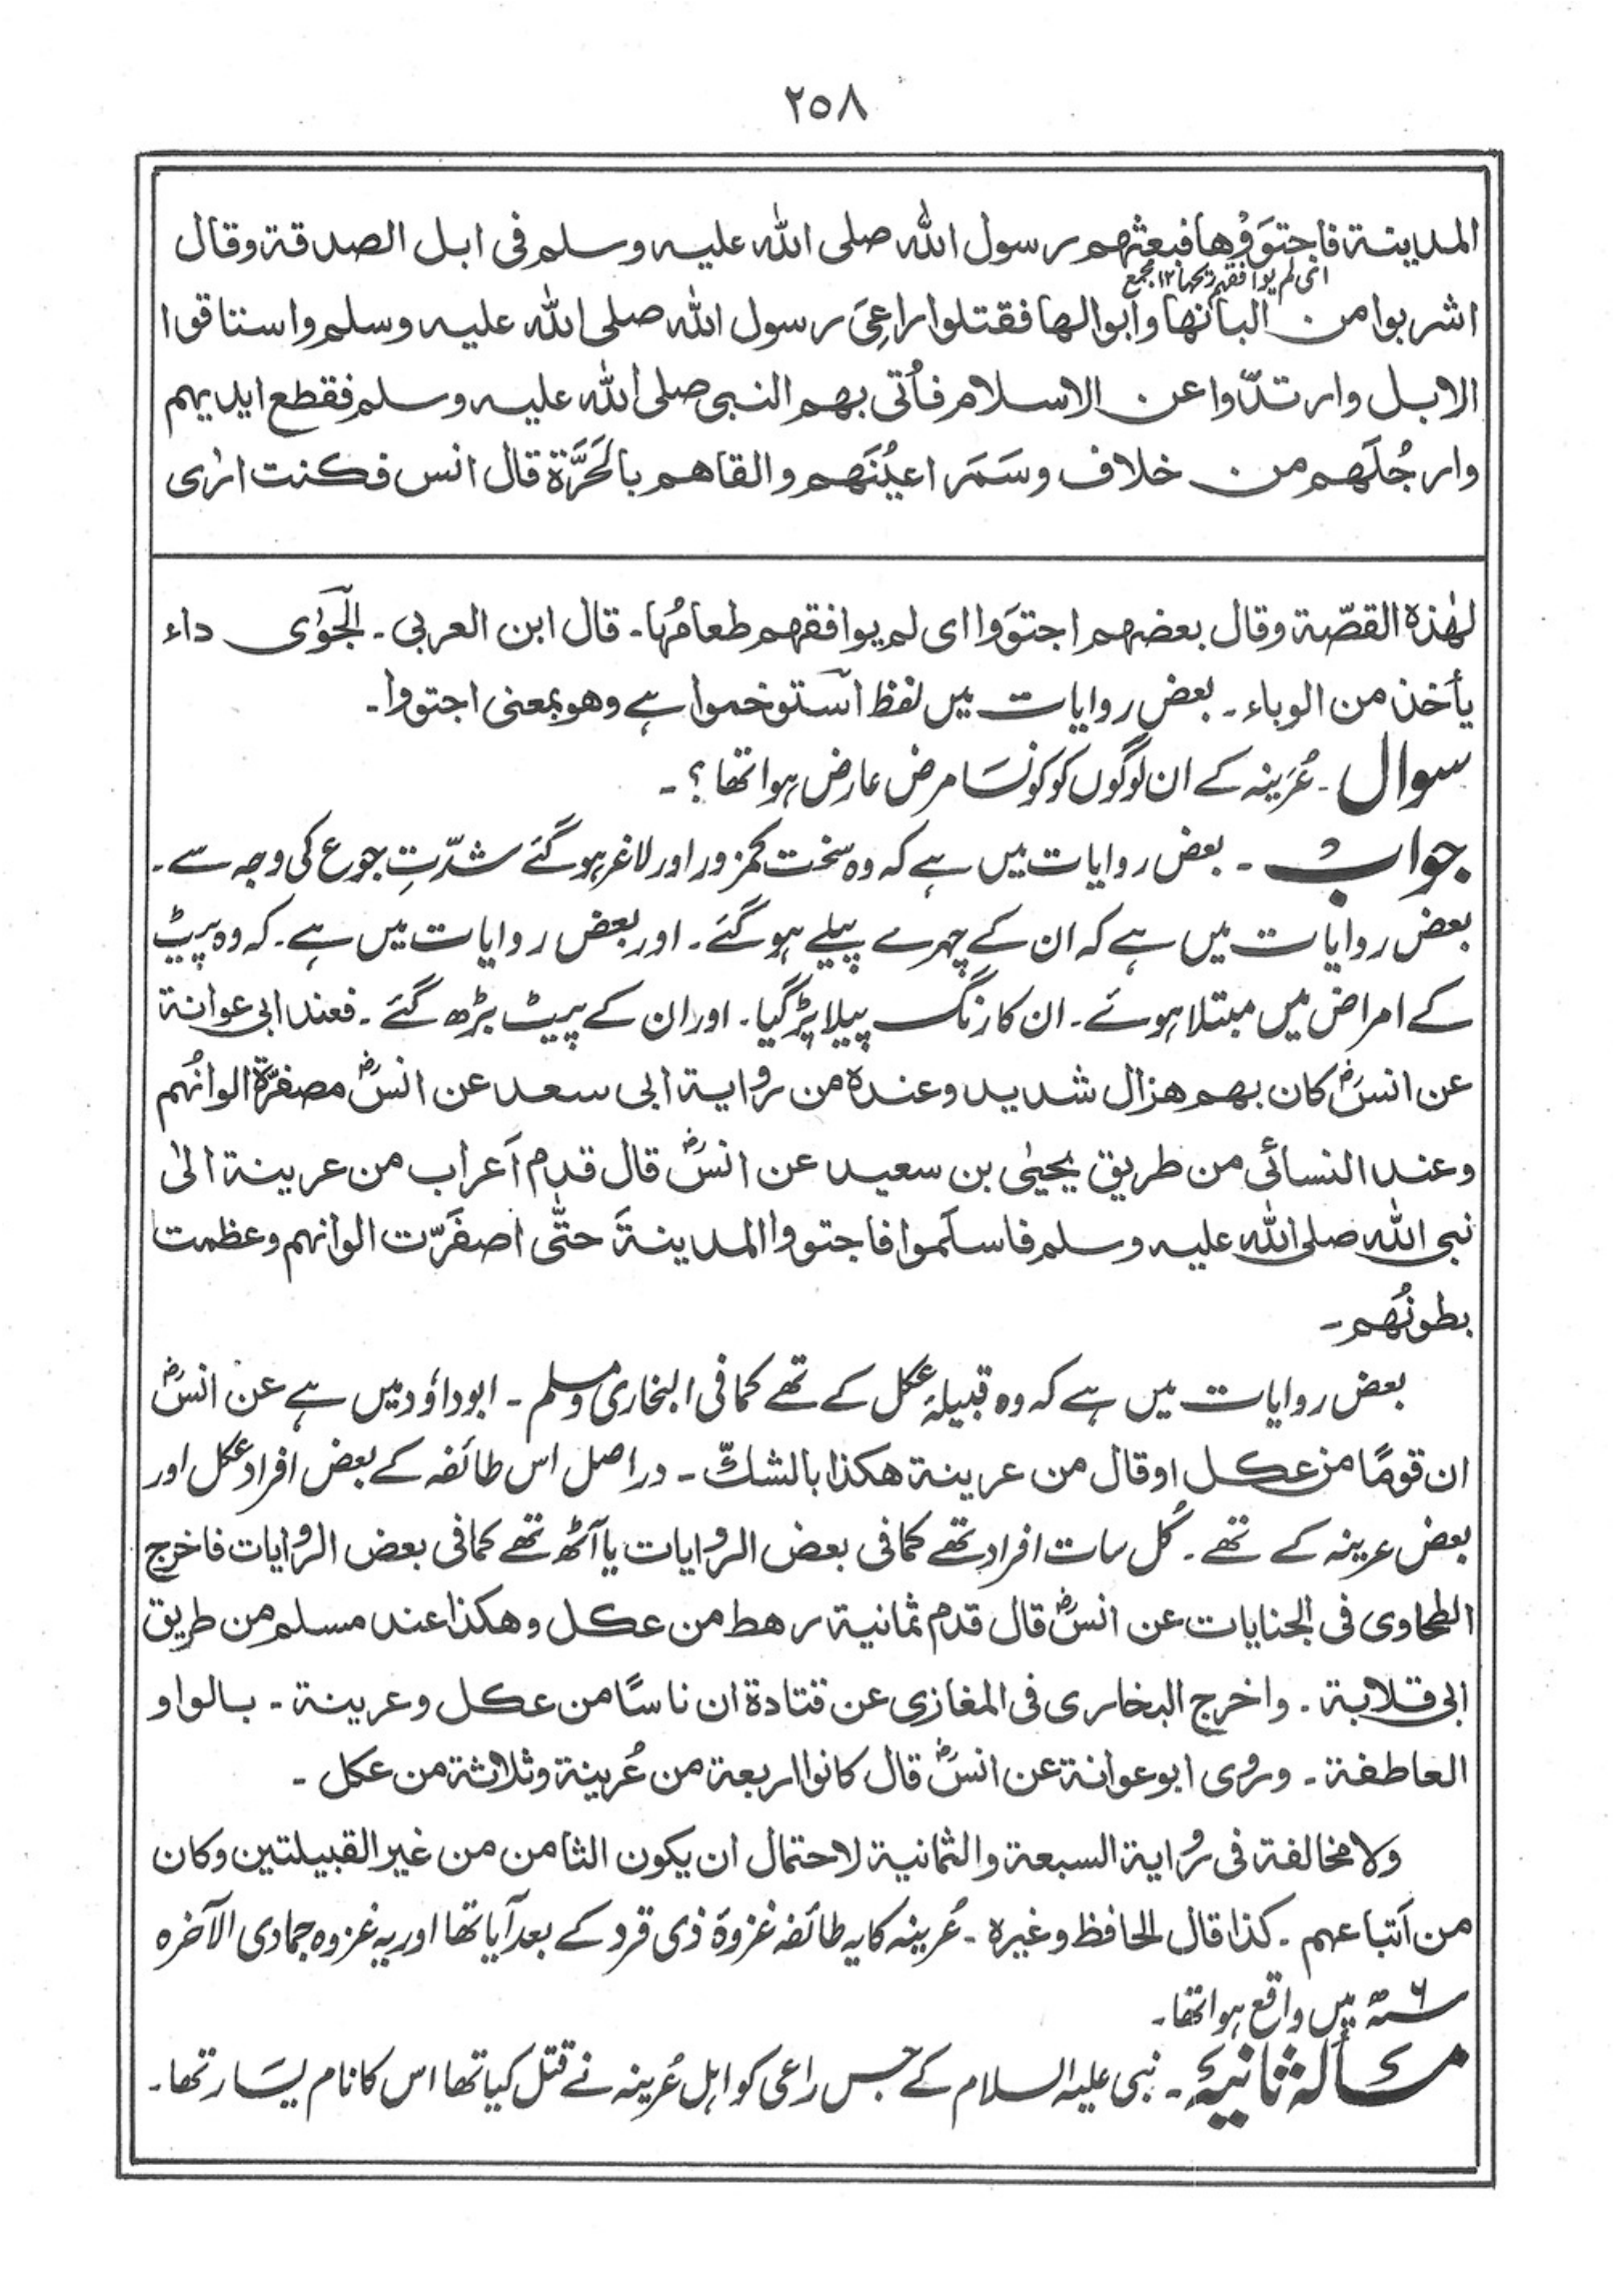 ٢٥٨
المدينة فاجتوَوْها فبعثهم رسول الله صلى الله عليه وسلم فى ابل الصدقة وقال
اى لم يوافقهم ريحها ١٢ مجمع
اشربوا من البانها وابوالها فقتلوا راعِىَ رسول الله صلى الله عليه وسلم واستاقوا
الابل وارتدّوا عن الاسلام فأتى بهم النبى صلى الله عليه وسلم فقطع ايديهم
وارجُلَهم من خلاف وسَمَر اعيُنَهم والقاهم بالحَرَّة قال انس فكنت ارٰى
لهٰذه القصّة وقال بعضهم اجتوَوا اى لم يوافقهم طعامُها۔ قال ابن العربى۔ الجَوٰى داء
يأخذ من الوباء۔ بعض روایات میں لفظ استوخموا ہے وهو بمعنى اجتووا۔
سوال۔ عُرَینہ کے ان لوگوں کو کونسَا مرض عارض ہوا تھا؟۔
جواب۔ بعض روایات میں ہے کہ وہ سخت کمزور اور لاغر ہوگئے شدّتِ جوع کی وجہ سے۔
بعض روایات میں ہے کہ ان کے چہرے پیلے ہوگئے۔ اور بعض روایات میں ہے۔ کہ وہ پیٹ
کے امراض میں مبتلا ہوئے۔ ان کا رنگ پیلا پڑگیا۔ اور ان کے پیٹ بڑھ گئے۔ فعند ابى عوانة
عن انسؓ كان بهم هزال شديد وعنده من رواية ابى سعد عن انسؓ مصفرّة الوانُهم
وعند النسائى من طريق يحيىٰ بن سعيد عن انسؓ قال قدم اَعراب من عرينة الىٰ
نبى الله صلى الله عليه وسلم فاسلَموا فاجتووا المدينةَ حتّٰى اصفَرّت الوانهم وعظمت
بطونُهم۔
بعض روایات میں ہے کہ وہ قبیلۂ عکل کے تھے کما فی البخاری ومسلم۔ ابوداؤد میں ہے عن انسؓ
ان قومًا من عكل او قال من عرينة هكذا بالشكّ۔ دراصل اس طائفہ کے بعض افراد عکل اور
بعض عرینہ کے تھے۔ کُل سات افراد تھے کما فی بعض الروایات یا آٹھ تھے کما فی بعض الروایات فاخرج
الطحاوى فى الجنايات عن انسؓ قال قدم ثمانية رهط من عكل وهكذا عند مسلم من طريق
ابى قلابة۔ واخرج البخارى فى المغازى عن قتادة ان ناسًا من عكل وعرينة۔ بالواو
العاطفة۔ وروى ابو عوانة عن انسؓ قال كانوا اربعة من عُرينة وثلاثة من عكل۔
ولا مخالفة فى رواية السبعة والثمانية لاحتمال ان يكون الثامن من غير القبيلتين وكان
من اَتباعهم۔ كذا قال الحافظ وغيره۔ عُرینہ کا یہ طائفہ غزوۂ ذی قرد کے بعد آیا تھا اور یہ غزوہ جمادی الآخرہ
سنہ ۶ ھ میں واقع ہوا تھا۔
مسألۂ ثانیہ۔ نبی علیہ السلام کے جس راعی کو اہل عُرینہ نے قتل کیا تھا اس کا نام یسَار تھا۔